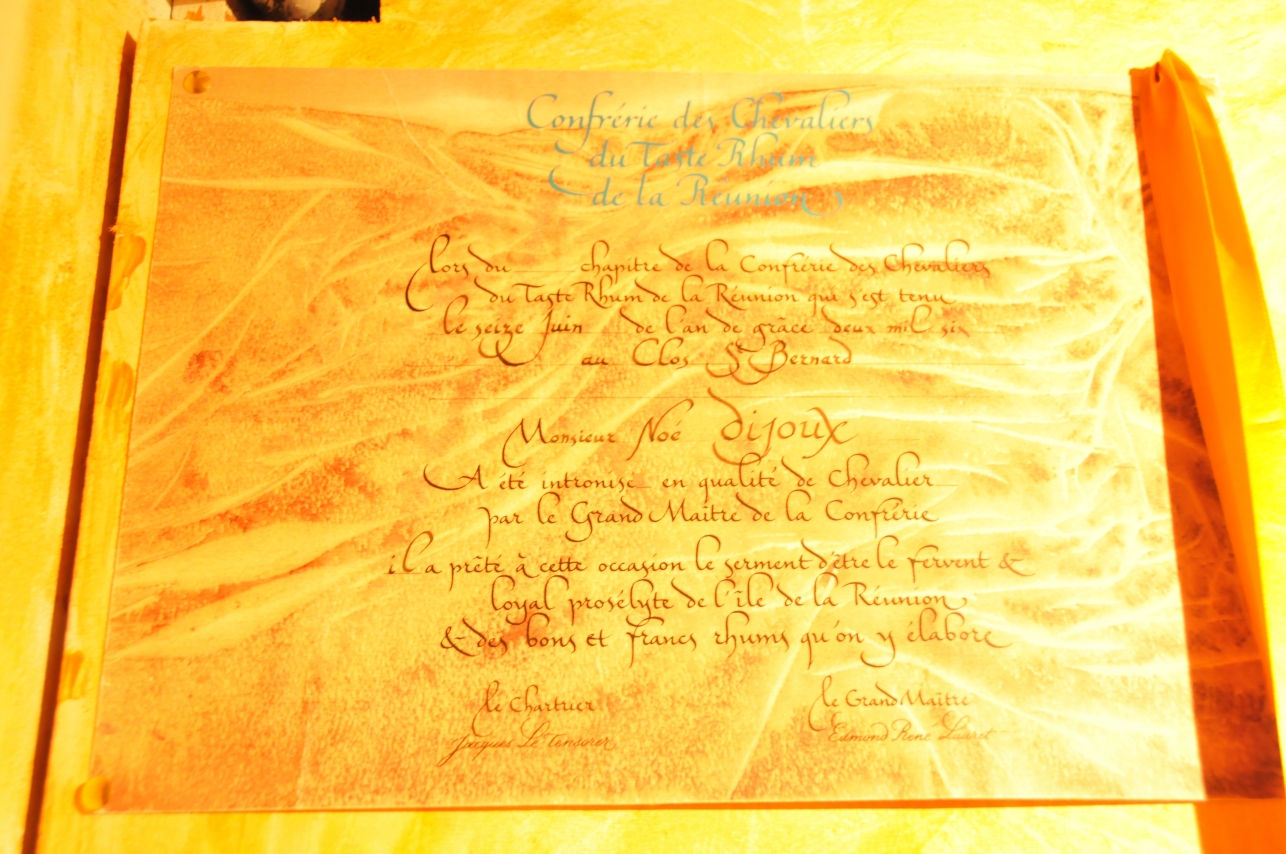 Confrérie des Chevaliers
du Taste Rhum
de la Réunion
lors du chapitre de la Confrérie des Chevaliers
du Taste Rhum de la Réunion qui s'est tenu
le seize Juin de l'an de grâce deux mil six
au Clos St Bernard
Monsieur Noé Dijoux
A été intronisé en qualité de Chevalier
par le Grand Maître de la Confrérie
il a prêté à cette occasion le serment d'être le fervent &
loyal prosélyte de l'île de la Réunion
& des bons et francs rhums qu'on y élabore
le Chartrier
le Grand Maître
Jacques Le Tensorer
Edmond René Lauret